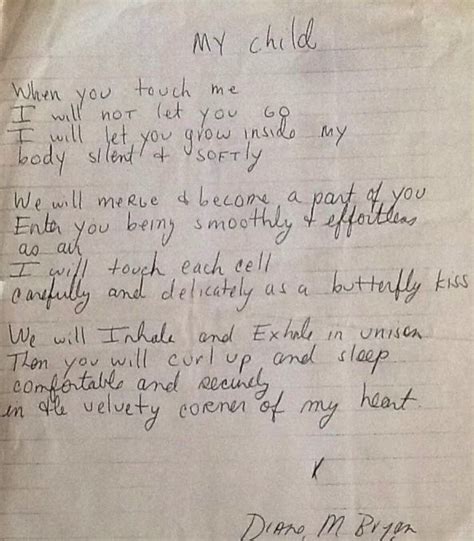 My Child
When you touch me
I will not let you Go
I will let you grow inside my
body silent & softly
We will merge & become a part of you
Enter you being smoothly & effortless
as air
I will touch each cell
carefully and delicately as a butterfly kiss
We will Inhale and Exhale in unison
Then you will curl up and sleep
comfortable and securely
in the velvety corner of my heart.
x
Diane M Bryan